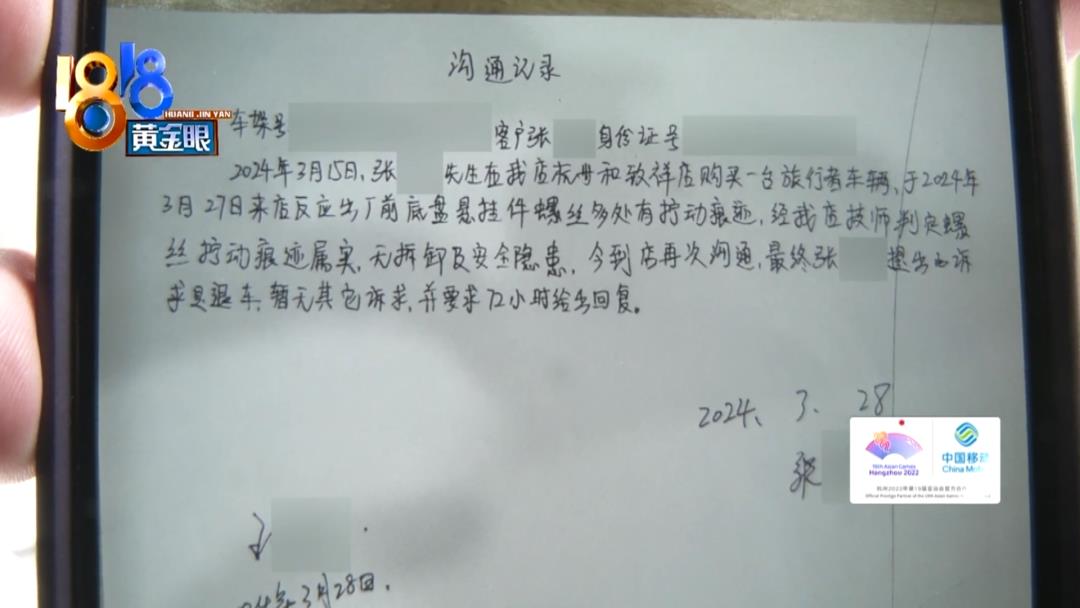 沟通记录
1818
HUANG JIN YAN
黄金眼
车架号 客户张 身份证号
2024年3月15日,张 先生在我店杭州和致祥店购买一台旅行者车辆,于2024年
3月27日来店反应出厂前底盘悬挂件螺丝多处有拧动痕迹,经我店技师判定螺
丝拧动痕迹属实,无拆卸及安全隐患,今到店再次沟通,最终张 提出的诉
求是退车,暂无其它诉求,并要求72小时给出回复。
2024、3、28
张
19th Asian Games
Hangzhou 2022
中国移动
China Mob
杭州2022年第19届亚运会官方合作
Official Prestige Partner of the 19th Asian Games
24年3月28日.